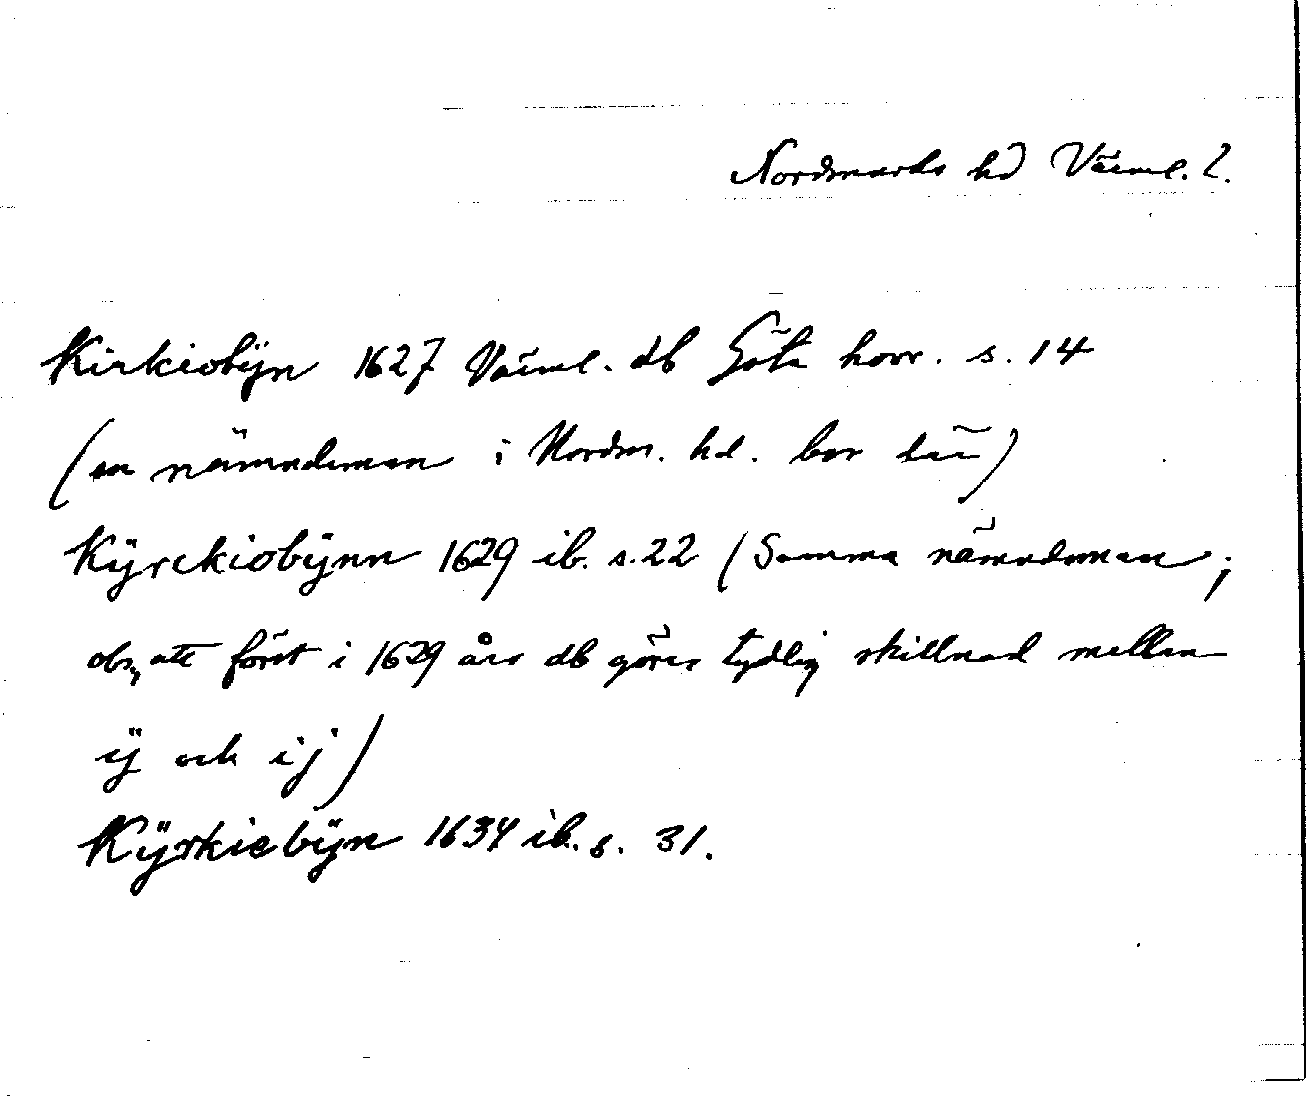 Nordmarks hd Värml. l.
Kirkiobÿn 1627 Värml. db Göta hovr. s. 14
(en nämndeman i Nordm. hd. bor där)
Kÿrckiobÿnn 1629 ib. s. 22 (Samma nämndeman;
obs, att först i 1629 års db göres tydlig skillnad mellan
ÿ och ij)
Kÿrkiebÿn 1634 ib. s. 31.